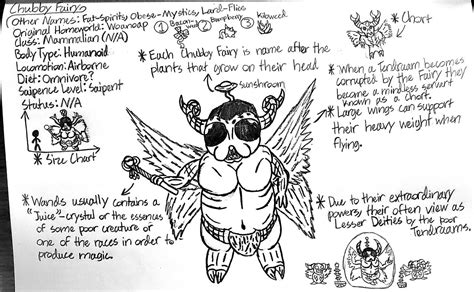 Chubby Fairy
Other Names: Fat-Spirits, Obese-Mystics, Land-Flies
Original Homeworld: Waanoap
Class: Mammalian (N/A)
Body Type: Humanoid
Locomotion: Airborne
Diet: Omnivore?
Saipence Level: Saipent
Status: N/A
* Size Chart
* Each Chubby Fairy is name after the
plants that grow on their head
sunshroom
* Chort
* When a Tendraam becomes
corrupted by the Fairy they
become a mindless servant
known as a Chort.
* Large wings can support
their heavy weight when
flying.
* Wands usually contains a
"Juice" crystal or the essences
of some poor creature or
one of the races in order to
produce magic.
* Due to their extraordinary
powers, their often view as
Lesser Deities by the poor
Tendraams.